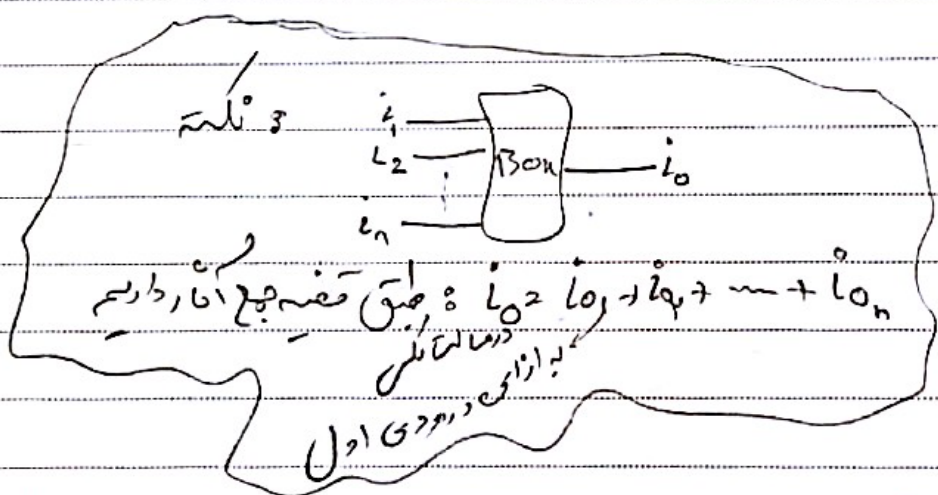 3 نکته
i₁
i₂ Box i₀
iₙ
طبق قضیه جمع آثار داریم : i₀ = i₀₁ + i₀₂ + ---- + i₀ₙ
در حالت کلی
به ازای ورودی اول